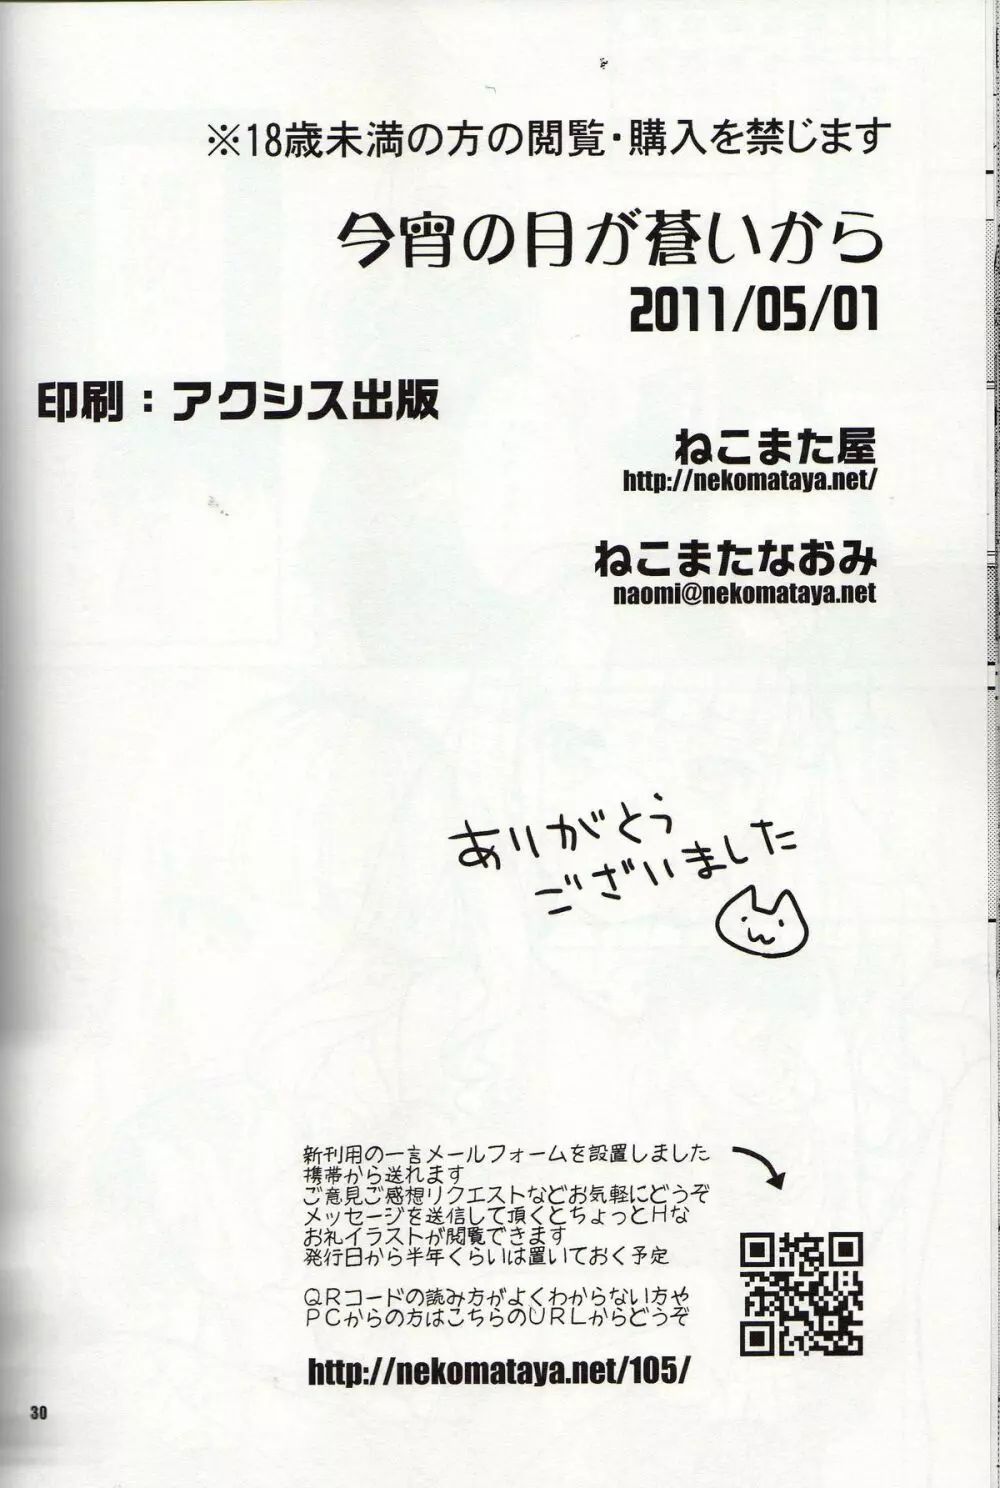 ※18歳未満の方の閲覧・購入を禁じます
今宵の月が蒼いから
2011/05/01
印刷：アクシス出版
ねこまた屋
http://nekomataya.net/
ねこまたなおみ
naomi@nekomataya.net
ありがとう
ございました
新刊用の一言メールフォームを設置しました
携帯から送れます
ご意見ご感想リクエストなどお気軽にどうぞ
メッセージを送信して頂くとちょっとHな
お礼イラストが閲覧できます
発行日から半年くらいは置いておく予定
QRコードの読み方がよくわからない方や
PCからの方はこちらのURLからどうぞ
http://nekomataya.net/105/
30